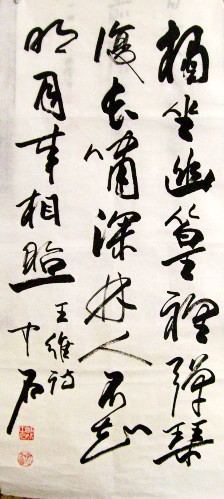 獨坐幽篁裡彈琴
復長嘯深林人不知
明月来相照
王維詩
中石